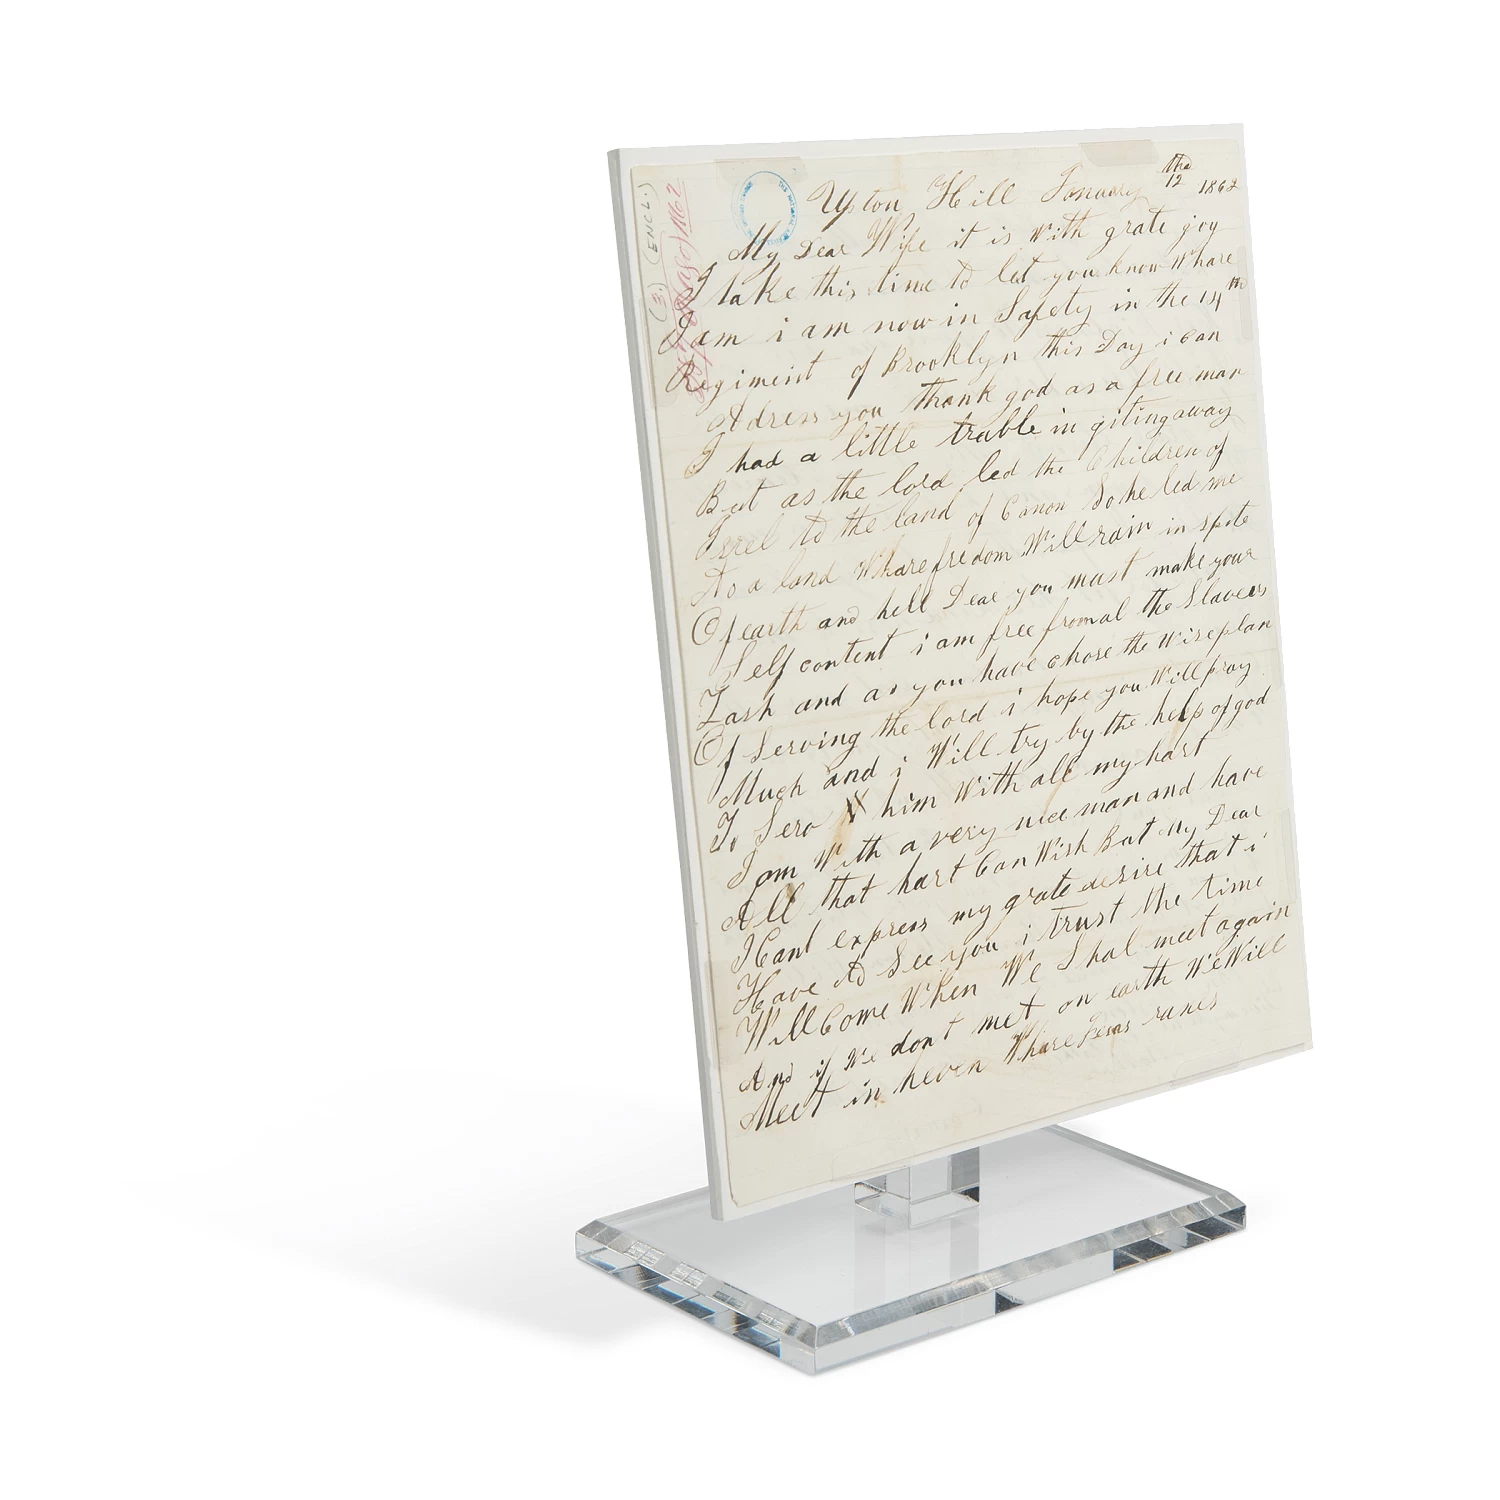 (3.) (ENCL.)
1862
Upton Hill January the 12 1862
My Dear Wife it is with grate joy
I take this time to let you know Whare
I am i am now in Safety in the 14th
Regiment of Brooklyn this Day i can
Adress you thank god as a free man
I had a little truble in giting away
But as the lord led the Children of
Isrel to the land of Canon So he led me
To a land Whare fredom Will rain in spite
Of earth and hell Dear you must make your
Self content i am free from al the Slavers
Lash and as you have chose the Wise plan
Of Serving the lord i hope you Will pray
Much and i Will try by the help of god
To Serv him With all my hart
I am With a very nice man and have
All that hart Can Wish But My Dear
I Cant express my grate desire that i
Have To See you i trust the time
Will Come When We Shal meet again
And if We dont met on earth We Will
Meet in heven Whare Jesas ranes